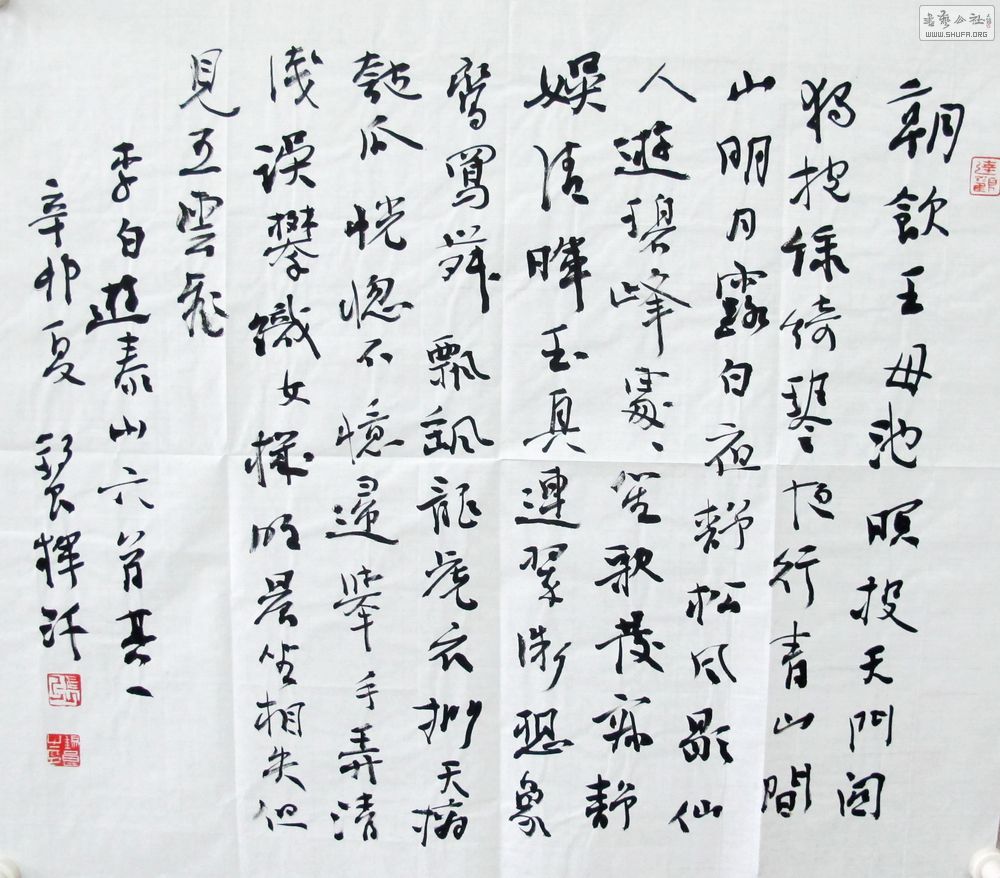 書藝公社
WWW.SHUFA.ORG
達觀
朝飲王母池暝投天門関
獨抱綠綺琴夜行青山間
山明月露白夜靜松風歇仙
人遊碧峰處〻笙歌發寂靜
娛清暉玉真連翠微想象
鸞鳳舞飄颻龍虎衣捫天摘
匏瓜恍惚不憶歸舉手弄清
淺誤攀織女機明晨坐相失但
見五雲飛
李白遊泰山六首其一
辛卯夏 揮汗
張